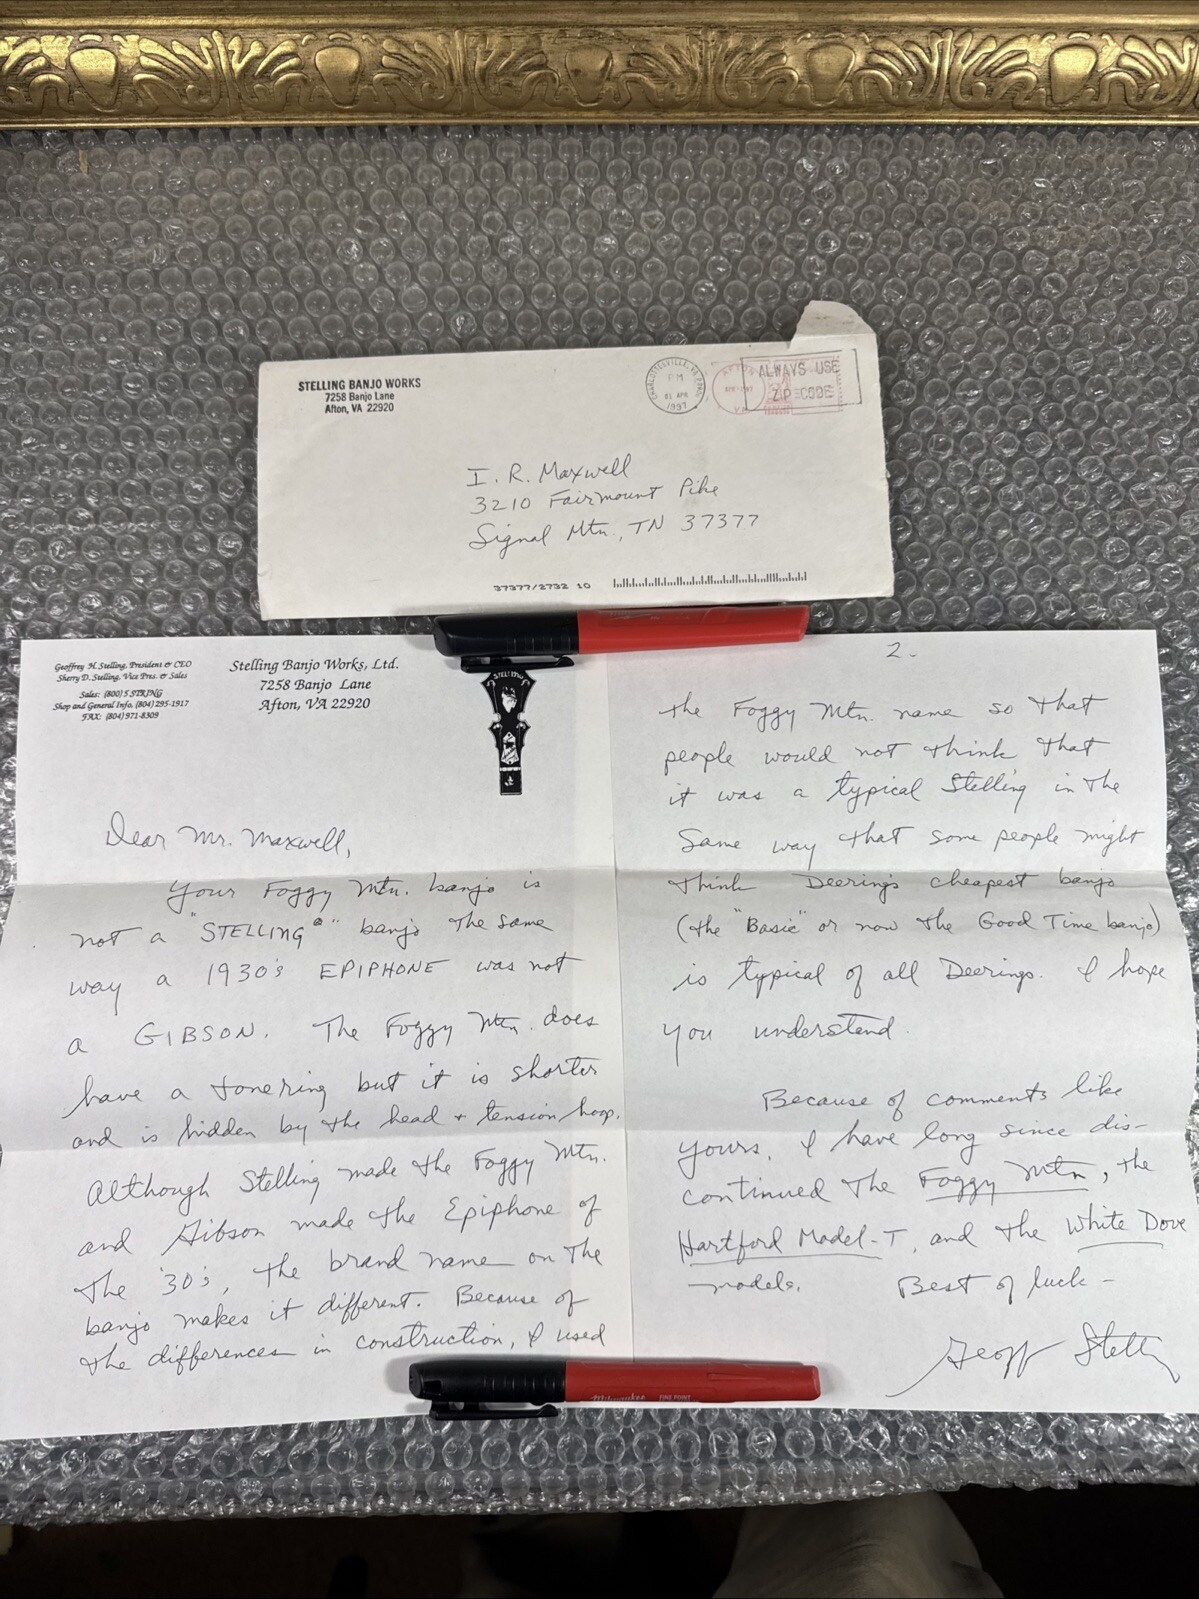 STELLING BANJO WORKS
7258 Banjo Lane
Afton, VA 22920
CHARLOTTESVILLE, VA
PM
01 APR
1997
VA
ALWAYS USE
ZIP CODE
I. R. Maxwell
3210 Fairmount Pike
Signal Mtn., TN 37377
37377/2732 10
Geoffrey H. Stelling, President & CEO
Sherry D. Stelling, Vice Pres. & Sales
Sales: (800) 5 STRING
Shop and General Info. (804) 295-1917
FAX: (804) 971-8309
Stelling Banjo Works, Ltd.
7258 Banjo Lane
Afton, VA 22920
STELLING
Dear Mr. Maxwell,
Your Foggy Mtn. banjo is
not a "STELLING®" banjo the same
way a 1930's EPIPHONE was not
a GIBSON. The Foggy Mtn. does
have a tonering but it is shorter
and is hidden by the head + tension hoop.
Although Stelling made the Foggy Mtn.
and Gibson made the Epiphone of
the '30's, the brand name on the
banjo makes it different. Because of
the differences in construction, I used
2.
the Foggy Mtn. name so that
people would not think that
it was a typical Stelling in the
same way that some people might
think Deering's cheapest banjo
(the "Basic" or now the Good Time banjo)
is typical of all Deerings. I hope
you understand.
Because of comments like
yours, I have long since dis-
continued the Foggy Mtn, the
Hartford Model-T, and the White Dove
models. Best of luck -
Geoff Stelling
Milwaukee FINE POINT